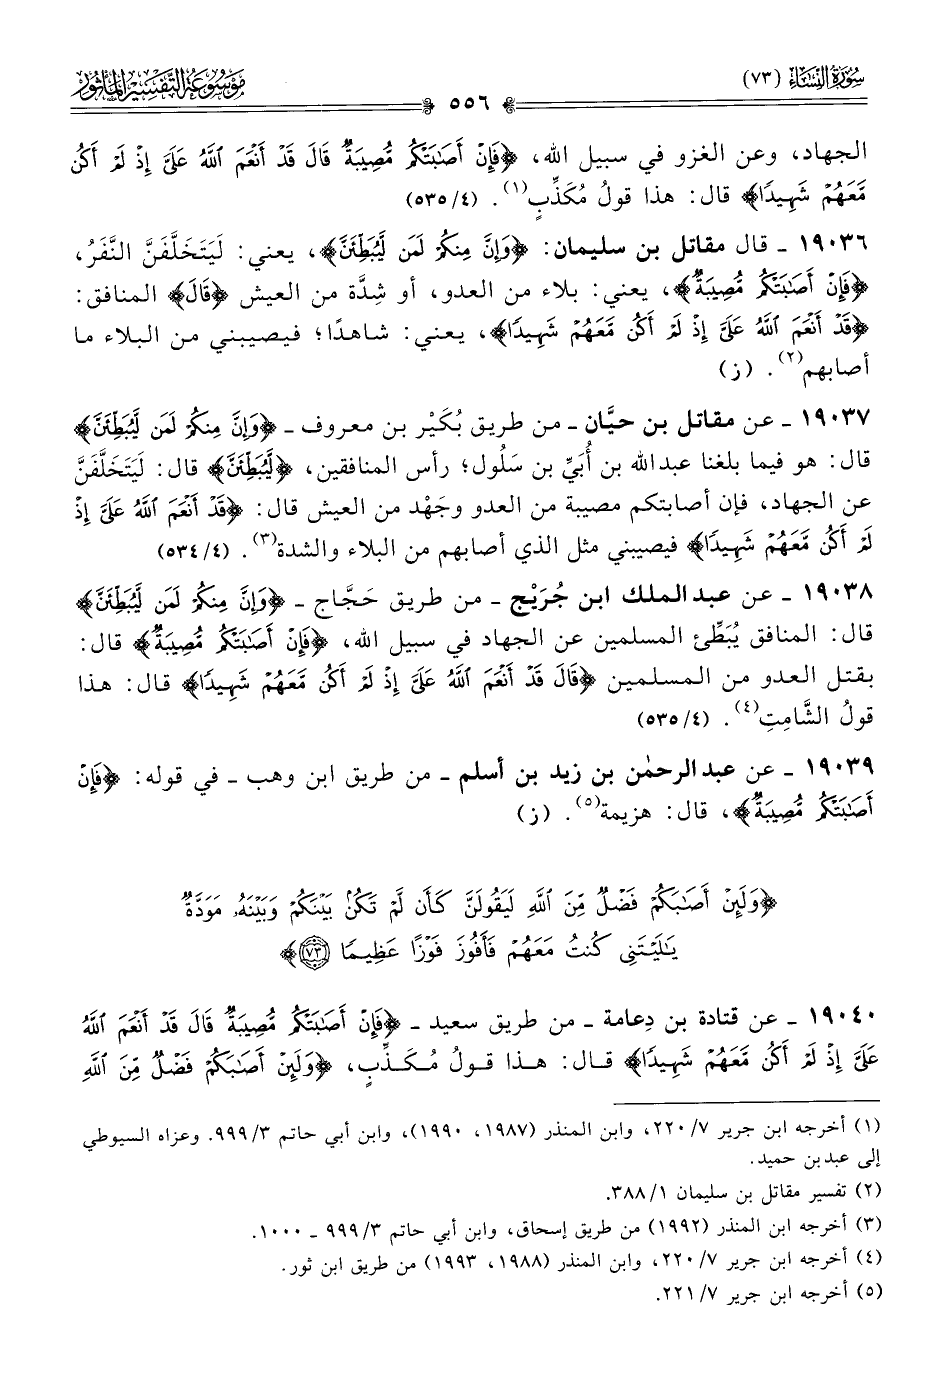 سُورَةُ النِّسَاءِ (٧٣)
٥٥٦
مَوْسُوعَة التَّفْسِيْرِ الْمَأْثُور
الجهاد، وعن الغزو في سبيل الله، ﴿فَإِنْ أَصَٰبَتْكُم مُّصِيبَةٌ قَالَ قَدْ أَنْعَمَ ٱللَّهُ عَلَىَّ إِذْ لَمْ أَكُن
مَّعَهُمْ شَهِيدًا﴾ قال: هذا قولُ مُكَذِّبٍ(١). (٤/ ٥٣٥)
١٩٠٣٦ ـ قال مقاتل بن سليمان: ﴿وَإِنَّ مِنكُمْ لَمَن لَّيُبَطِّئَنَّ﴾، يعني: لَيَتَخلَّفَنَّ النَّفَرُ،
﴿فَإِنْ أَصَٰبَتْكُم مُّصِيبَةٌ﴾، يعني: بلاء من العدو، أو شِدَّة من العيش ﴿قَالَ﴾ المنافق:
﴿قَدْ أَنْعَمَ ٱللَّهُ عَلَىَّ إِذْ لَمْ أَكُن مَّعَهُمْ شَهِيدًا﴾، يعني: شاهدًا؛ فيصيبني من البلاء ما
أصابهم(٢). (ز)
١٩٠٣٧ ـ عن مقاتل بن حيَّان ـ من طريق بُكَيْر بن معروف ـ ﴿وَإِنَّ مِنكُمْ لَمَن لَّيُبَطِّئَنَّ﴾
قال: هو فيما بلغنا عبدالله بن أُبَيِّ بن سَلُول؛ رأس المنافقين، ﴿لَّيُبَطِّئَنَّ﴾ قال: لَيَتَخلَّفَنَّ
عن الجهاد، فإن أصابتكم مصيبة من العدو وجَهْد من العيش قال: ﴿قَدْ أَنْعَمَ ٱللَّهُ عَلَىَّ إِذْ
لَمْ أَكُن مَّعَهُمْ شَهِيدًا﴾ فيصيبني مثل الذي أصابهم من البلاء والشدة(٣). (٤/ ٥٣٤)
١٩٠٣٨ ـ عن عبدالملك ابن جُرَيْج ـ من طريق حَجَّاج ـ ﴿وَإِنَّ مِنكُمْ لَمَن لَّيُبَطِّئَنَّ﴾
قال: المنافق يُبَطِّئ المسلمين عن الجهاد في سبيل الله، ﴿فَإِنْ أَصَٰبَتْكُم مُّصِيبَةٌ﴾ قال:
بقتل العدو من المسلمين ﴿قَالَ قَدْ أَنْعَمَ ٱللَّهُ عَلَىَّ إِذْ لَمْ أَكُن مَّعَهُمْ شَهِيدًا﴾ قال: هذا
قولُ الشَّامِتِ(٤). (٤/ ٥٣٥)
١٩٠٣٩ ـ عن عبدالرحمٰن بن زيد بن أسلم ـ من طريق ابن وهب ـ في قوله: ﴿فَإِنْ
أَصَٰبَتْكُم مُّصِيبَةٌ﴾، قال: هزيمة(٥). (ز)
﴿وَلَئِنْ أَصَٰبَكُمْ فَضْلٌ مِّنَ ٱللَّهِ لَيَقُولَنَّ كَأَن لَّمْ تَكُنۢ بَيْنَكُمْ وَبَيْنَهُۥ مَوَدَّةٌ
يَٰلَيْتَنِى كُنتُ مَعَهُمْ فَأَفُوزَ فَوْزًا عَظِيمًا ٧٣﴾
١٩٠٤٠ ـ عن قتادة بن دِعامة ـ من طريق سعيد ـ ﴿فَإِنْ أَصَٰبَتْكُم مُّصِيبَةٌ قَالَ قَدْ أَنْعَمَ ٱللَّهُ
عَلَىَّ إِذْ لَمْ أَكُن مَّعَهُمْ شَهِيدًا﴾ قال: هذا قولُ مُكَذِّبٍ، ﴿وَلَئِنْ أَصَٰبَكُمْ فَضْلٌ مِّنَ ٱللَّهِ
(١) أخرجه ابن جرير ٧/ ٢٢٠، وابن المنذر (١٩٨٧، ١٩٩٠)، وابن أبي حاتم ٣/ ٩٩٩. وعزاه السيوطي
إلى عبد بن حميد.
(٢) تفسير مقاتل بن سليمان ١/ ٣٨٨.
(٣) أخرجه ابن المنذر (١٩٩٢) من طريق إسحاق، وابن أبي حاتم ٣/ ٩٩٩ ـ ١٠٠٠.
(٤) أخرجه ابن جرير ٧/ ٢٢٠، وابن المنذر (١٩٨٨، ١٩٩٣) من طريق ابن ثور.
(٥) أخرجه ابن جرير ٧/ ٢٢١.